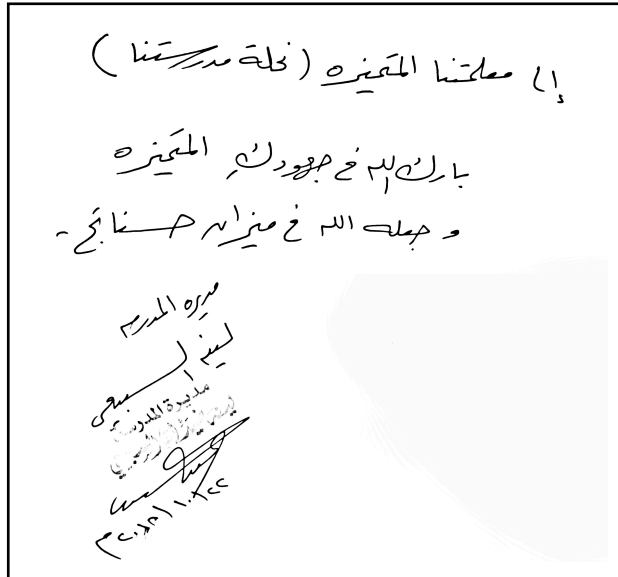 إلى معلمتنا المتميزه (نحلة مدرستنا)
بارك الله في جهودكِ المتميزه
و جعله الله في ميزان حسناتج -
مديره المدرسه
لبنى السبيعي
مديرة المدرسة